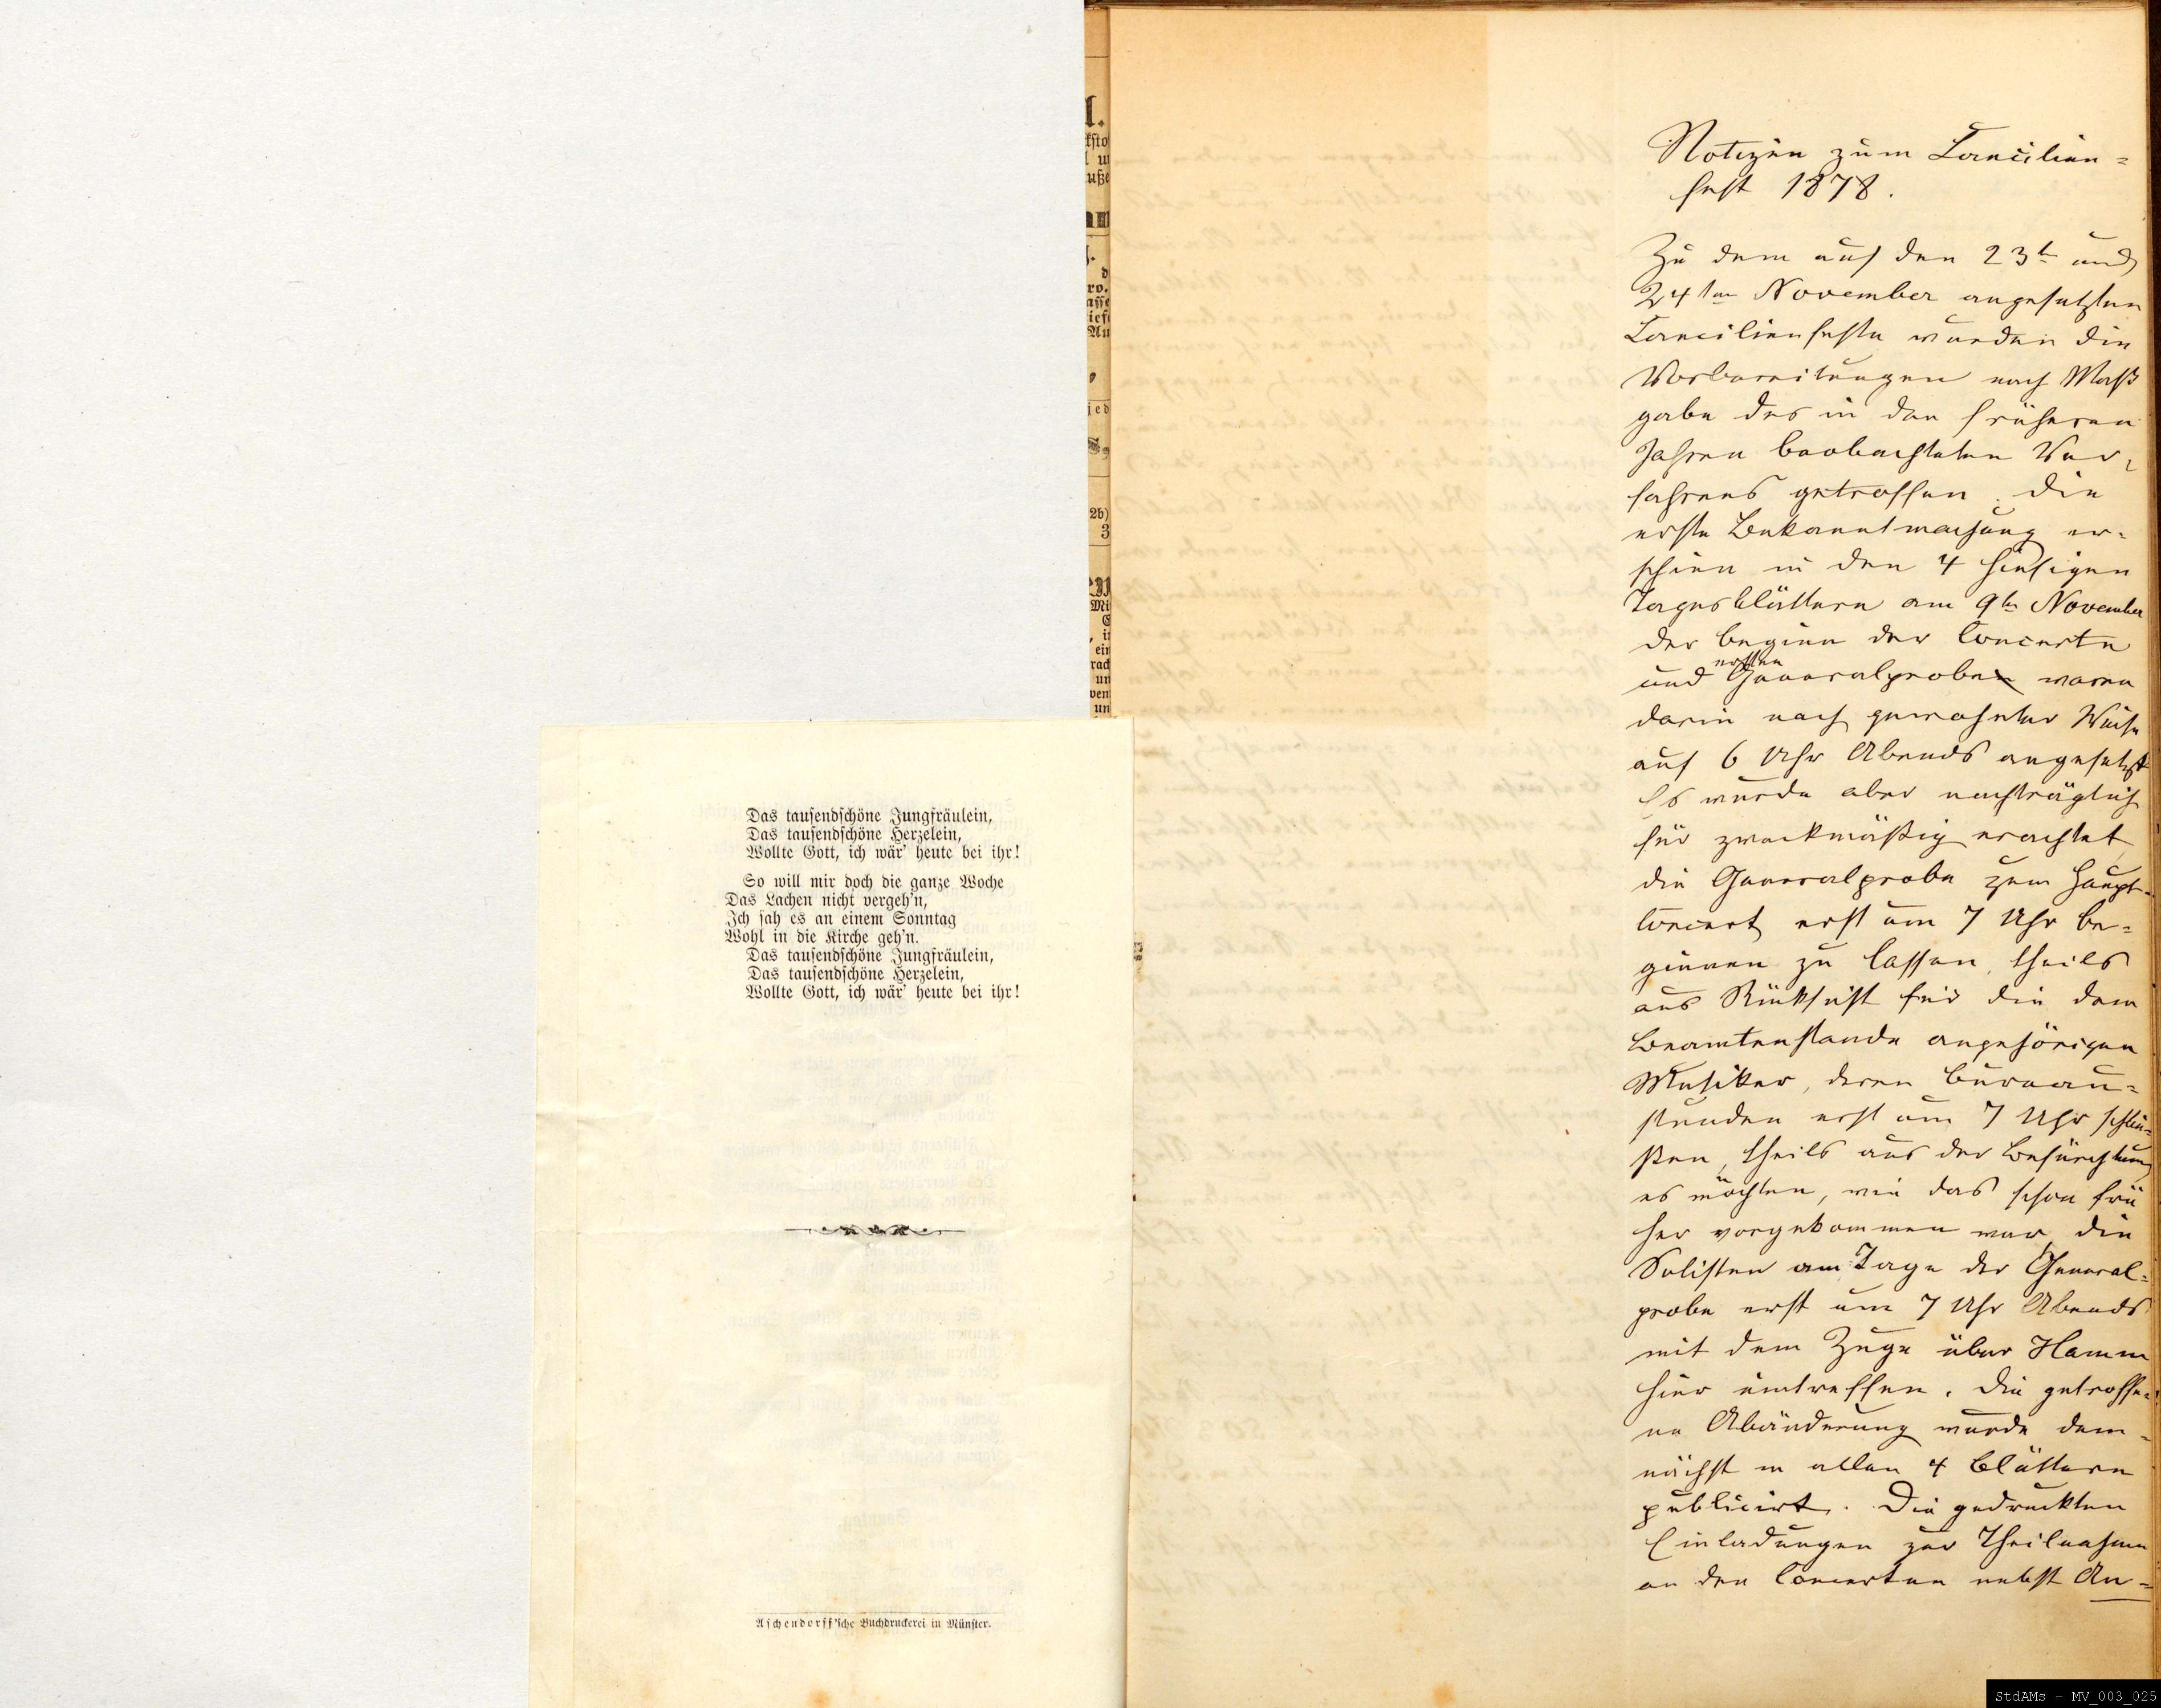 Das tausendschöne Jungfräulein,
Das tausendschöne Herzelein,
Wollte Gott, ich wär' heute bei ihr!
So will mir doch die ganze Woche
Das Lachen nicht vergeh'n,
Ich sah es an einem Sonntag
Wohl in die Kirche geh'n.
Das tausendschöne Jungfräulein,
Das tausendschöne Herzelein,
Wollte Gott, ich wär' heute bei ihr!
Aschendorff'sche Buchdruckerei in Münster.
Notizen zum Caecilien-
fest 1878.
Zu dem auf den 23t und
24ten November angesetzten
Caecilienfeste wurden die
Vorbereitungen nach Maß
gabe des in den früheren
Jahren beobachteten Ver-
fahrens getroffen. Die
erste Bekanntmachung er-
schien in den 4 hiesigen
Tagesblättern am 9ten November
der Beginn der Concerte
und ersten Generalprobe waren
darin nach gewohnter Weise
auf 6 Uhr Abends angesetzt
Es wurde aber nachträglich
für zweckmäßig erachtet
die Generalprobe zum Haupt-
concert erst um 7 Uhr be-
ginnen zu lassen, theils
aus Rücksicht für die dem
Beamtenstande angehörigen
Musiker, deren Bureau-
stunden erst um 7 Uhr schlie-
ßen, theils aus der Befürchtung
es möchten, wie das schon frü
her vorgekommen war, die
Solisten am Tage der General-
probe erst um 7 Uhr Abends
mit dem Zuge über Hamm
hier eintreffen. Die getroffe-
ne Abänderung wurde dem-
nächst in allen 4 Blättern
publicirt. Die gedruckten
Einladungen zur Theilnahme
an den Concerten nebst An-
StdAMs - MV_003_025